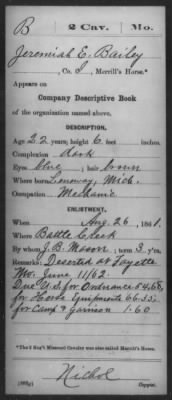 B | 2 Cav. | Mo.
Jeremiah E. Bailey
, Co. I, Merrill's Horse.*
Appears on
Company Descriptive Book
of the organization named above.
DESCRIPTION.
Age 22 years; height 6 feet inches.
Complexion Dark
Eyes blue; hair brown
Where born Lenoway, Mich.
Occupation Mechanic
ENLISTMENT.
When Aug. 26, 1861.
Where Battle Creek
By whom J. B. Mason; term 3 y'rs.
Remarks: Deserted at Fayette
Mo. June 11/62
Due U.S. for Ordnance 54.68,
for Horse Equipments 66.55
for Camp & Garrison 1.60
*The 2 Reg't Missouri Cavalry was also called Merrill's Horse.
Nichol
Copyist.